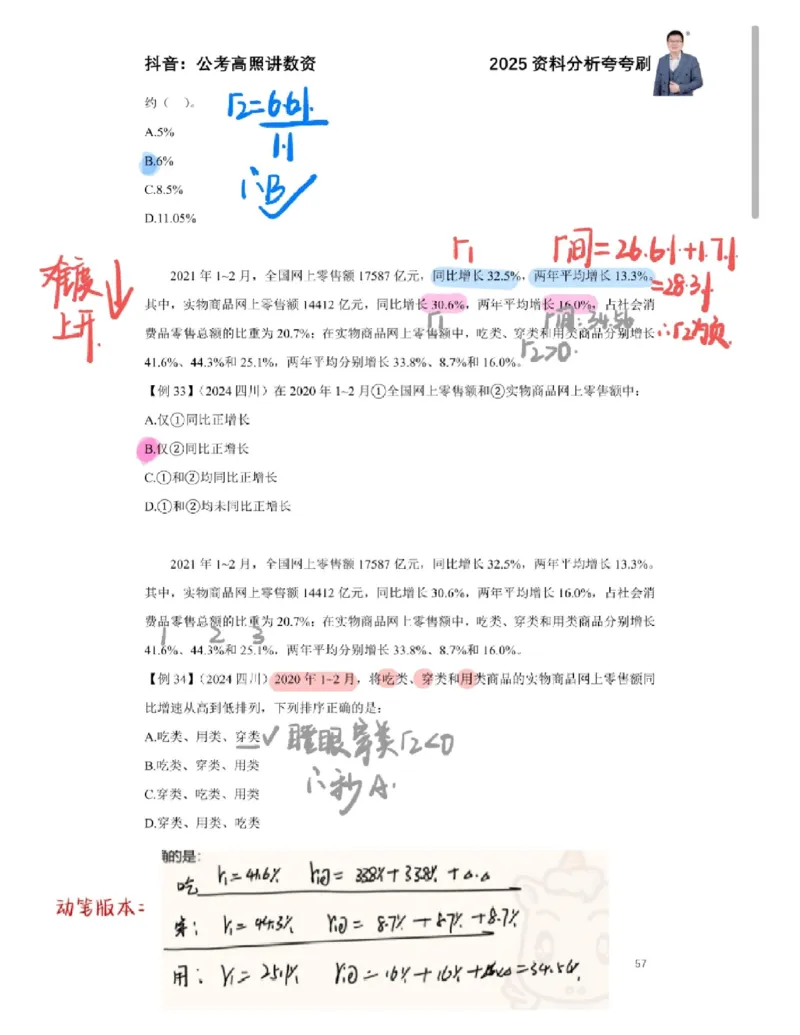 抖音：公考高照讲数资
2025 资料分析夸夸刷
约（ ）。
r2=6.6%
1.1
A.5%
B.6%
∴B✓
C.8.5%
D.11.05%
r1
r间=26.6%+1.7%
=28.3%
∴r2为负
难度上升↓
2021 年 1~2 月，全国网上零售额 17587 亿元，同比增长 32.5%，两年平均增长 13.3%。
其中，实物商品网上零售额 14412 亿元，同比增长 30.6%，两年平均增长 16.0%，占社会消
r1
r间:34.56
费品零售总额的比重为 20.7%；在实物商品网上零售额中，吃类、穿类和用类商品分别增长
r2>0.
41.6%、44.3%和 25.1%，两年平均分别增长 33.8%、8.7%和 16.0%。
【例 33】（2024 四川）在 2020 年 1~2 月①全国网上零售额和②实物商品网上零售额中：
A.仅①同比正增长
B.仅②同比正增长
C.①和②均同比正增长
D.①和②均未同比正增长
2021 年 1~2 月，全国网上零售额 17587 亿元，同比增长 32.5%，两年平均增长 13.3%。
其中，实物商品网上零售额 14412 亿元，同比增长 30.6%，两年平均增长 16.0%，占社会消
费品零售总额的比重为 20.7%；在实物商品网上零售额中，吃类、穿类和用类商品分别增长
1 2 3
41.6%、44.3%和 25.1%，两年平均分别增长 33.8%、8.7%和 16.0%。
【例 34】（2024 四川）2020 年 1~2 月，将吃类、穿类和用类商品的实物商品网上零售额同
比增速从高到低排列，下列排序正确的是：
A.吃类、用类、穿类✓
瞳眼穿类r2<0
B.吃类、穿类、用类
∴秒A.
C.穿类、吃类、用类
D.穿类、用类、吃类
确的是：
吃 r1=41.6% r间=33.8%+33.8%+
动笔版本：
穿： r1=44.3% r间=8.7%+8.7%+8.7%
用： r1=25.1% r间=16%+16%+ =34.56%
57